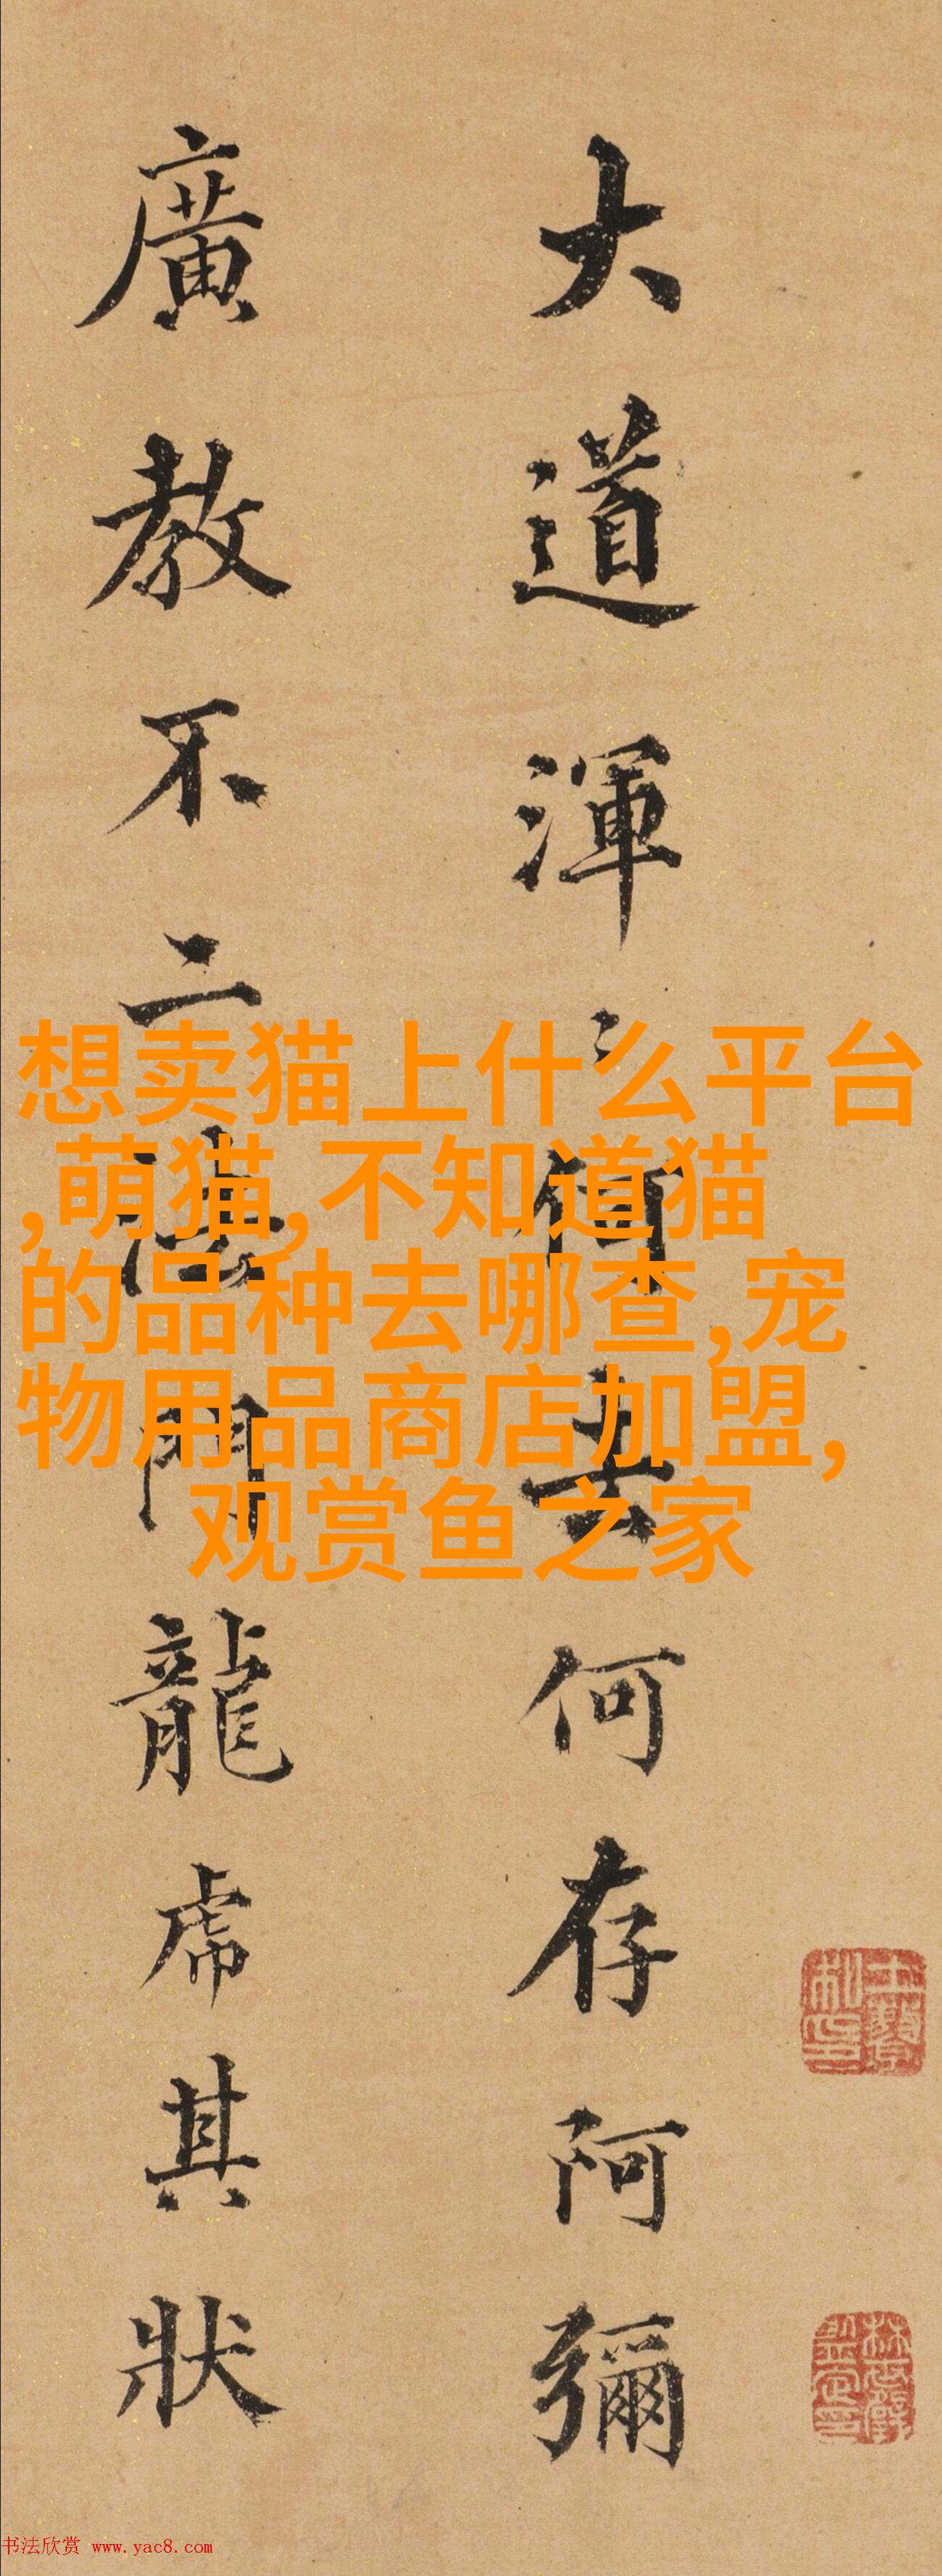 大道渾〻何去何存阿彌
廣教不二法門龍虎其狀
想卖猫上什么平台
,萌猫,不知道猫
的品种去哪查,宠
物用品商店加盟,
观赏鱼之家
书法欣赏 www.yac8.com